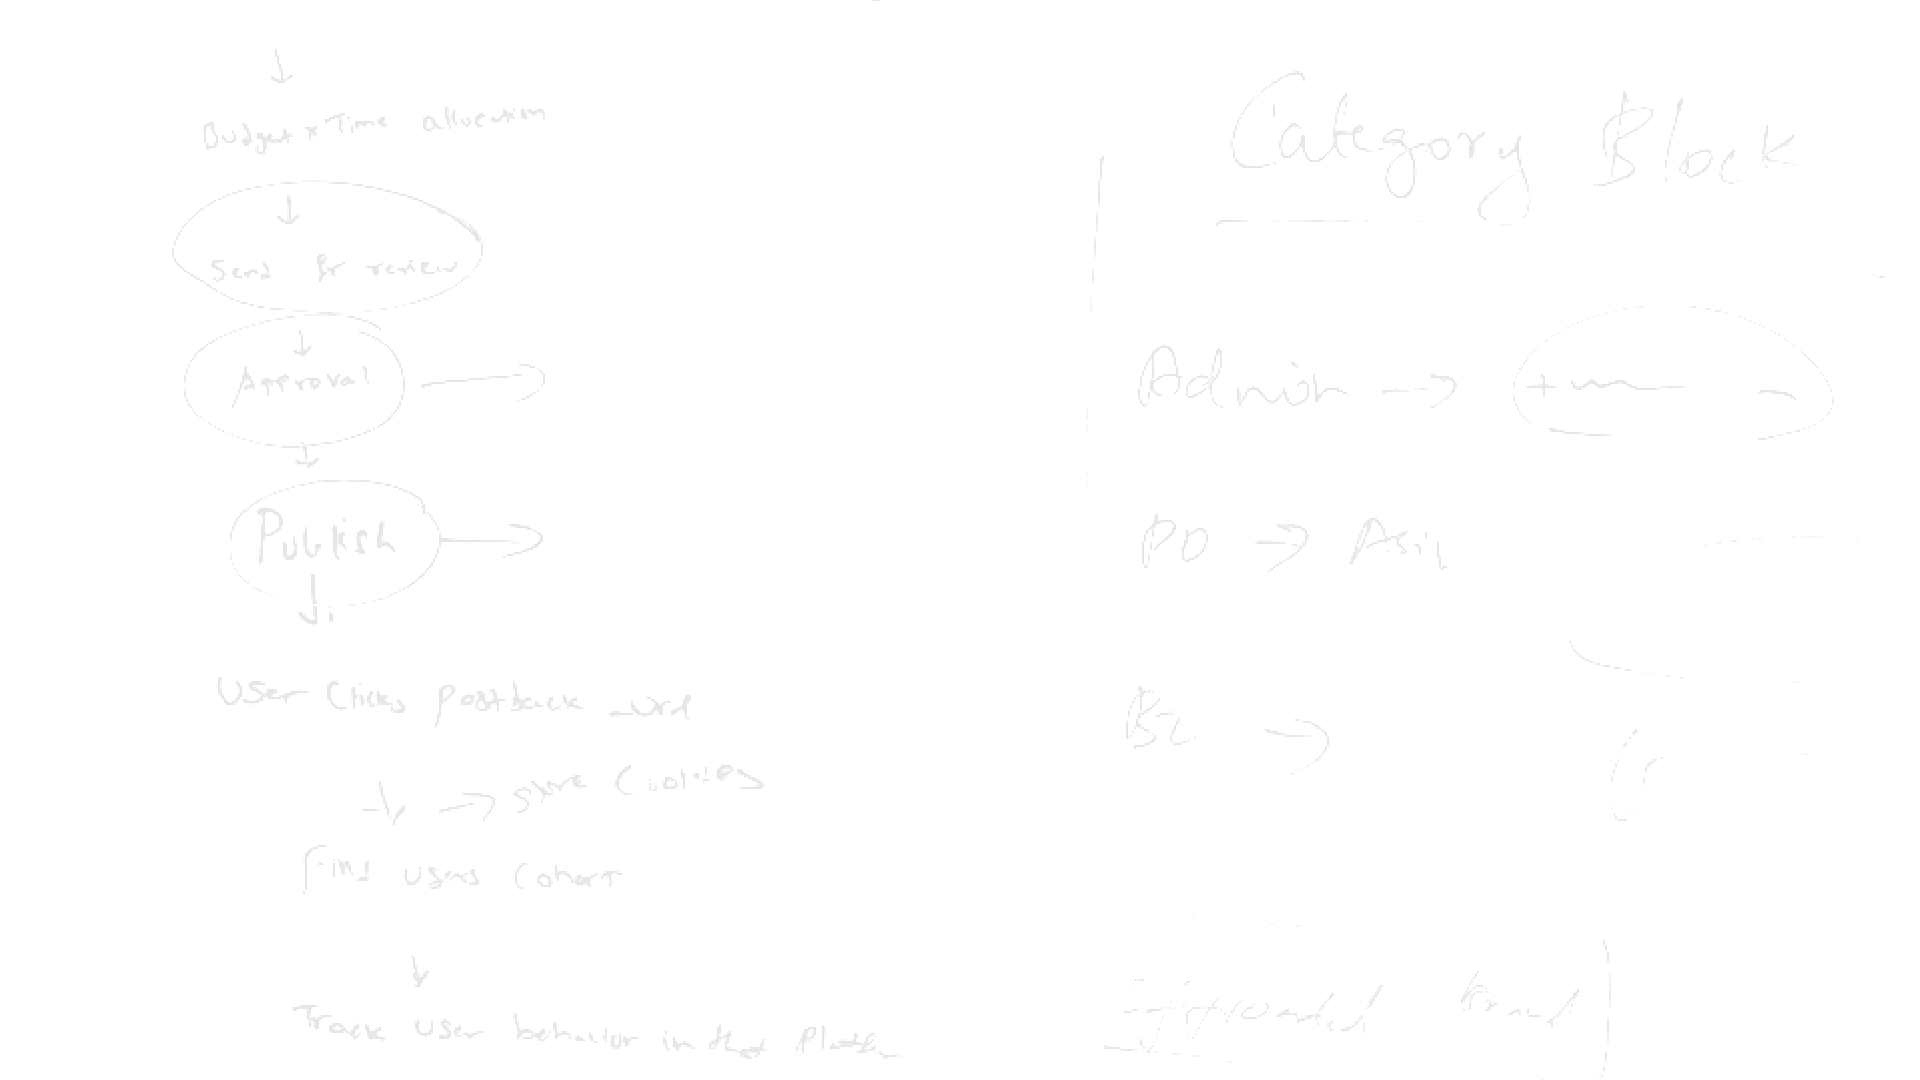 Budget * Time allocation
Send for review
Approval
Publish
User Clicks Postback url
store Cookies
Find users Cohort
Track user behavior in that Platform
Category Block
Admin
PD
B2
Brand